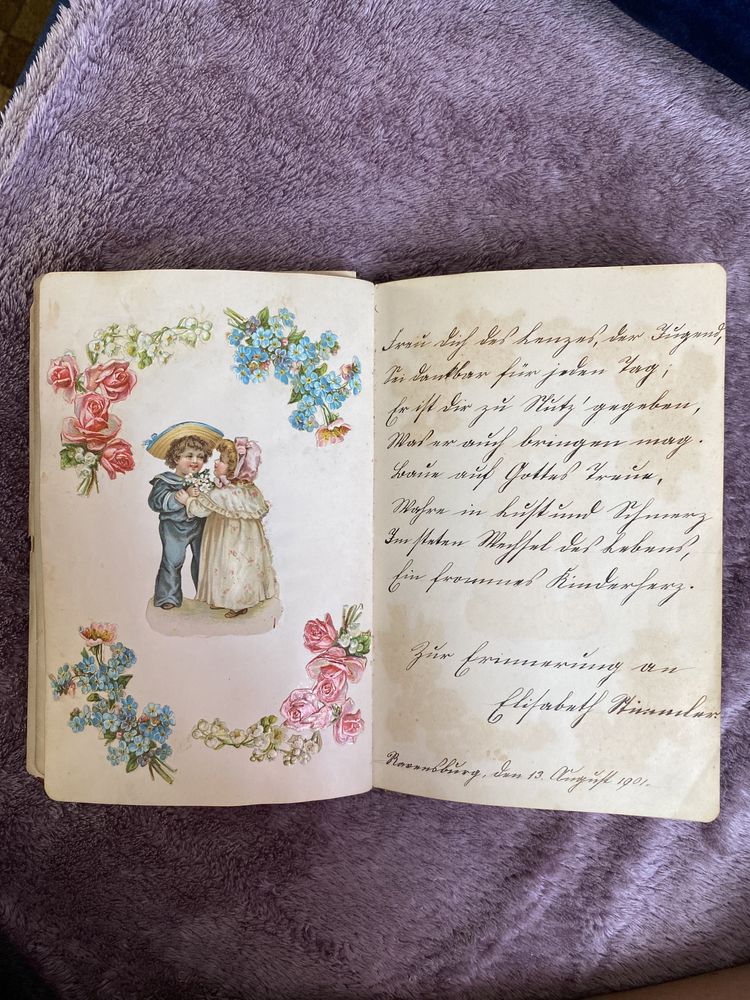 Freu dich des Lenzes, der Jugend,
Sei dankbar für jeden Tag;
Er ist dir zu Nutz' gegeben,
Was er auch bringen mag.
Baue auf Gottes Treue,
Wahre in Lust und Schmerz
Im steten Wechsel des Lebens,
Ein frommes Kinderherz.
Zur Erinnerung an
Elisabeth
Ravensburg, den 13. August 1901.